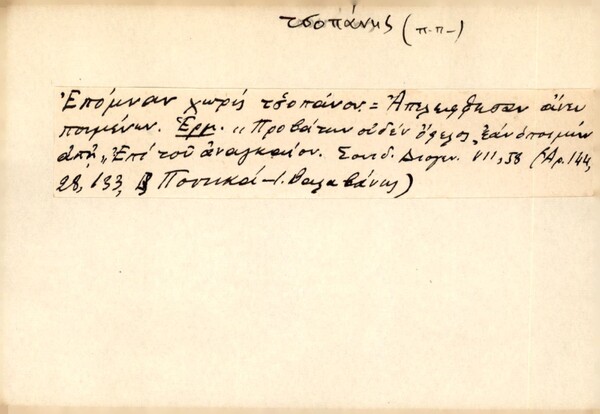 τσοπάνης (π.π-)
Ἐπόμναν χωρίς τσοπάνον. = Ἀπελείφθησαν ἄνευ
ποιμένων. Ἑρμ. „Προβάτων οὐδέν ὄφελος, ἐάν ὁ ποιμήν
ἀπῇ„ Ἐπί τοῦ ἀναγκαίου. Σουιδ. Διογεν. VII, 58 (Ἀρ. 144,
28, 133, Ποντικά - Ι. Βαλαβάνης)